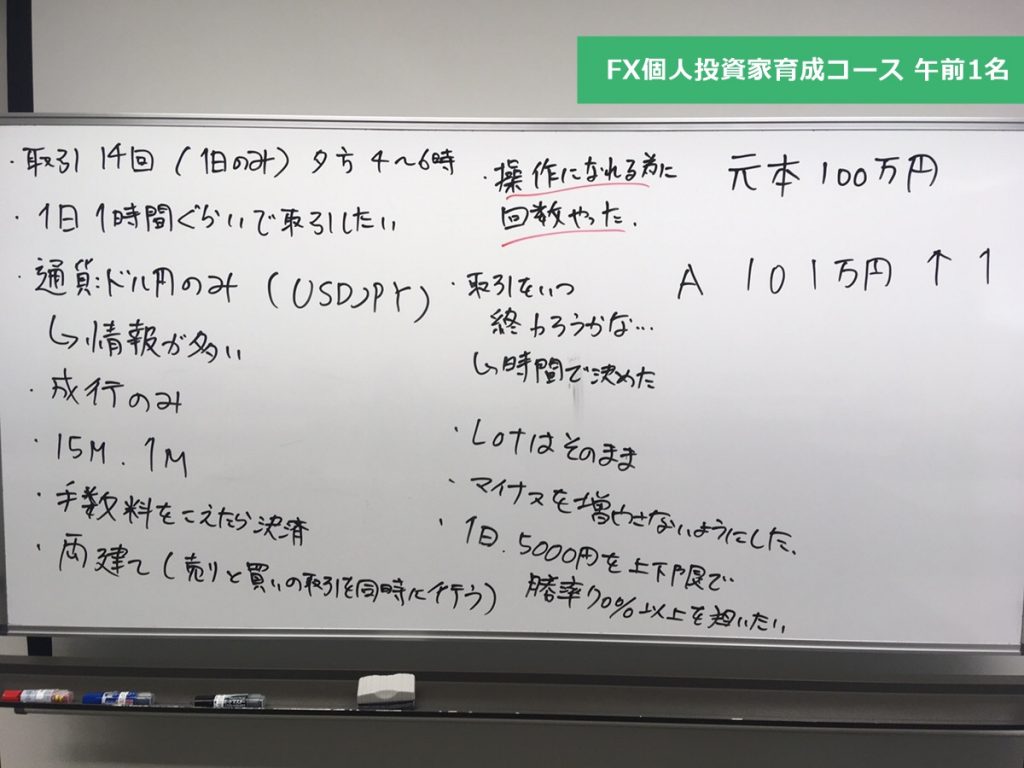 FX個人投資家育成コース 午前1名
・取引 14回 (1日のみ) 夕方 4〜6時
・1日 1時間ぐらいで取引したい
・通貨:ドル円のみ (USDJPY)
↳情報が多い
・成行のみ
・15M. 1M
・手数料をこえたら決済
・両建て (売りと買いの取引を同時に行う)
・操作になれる為に
回数やった.
・取引をいつ
終わろうかな…
↳時間で決めた
・Lotはそのまま
・マイナスを増やさないようにした.
・1日. 5000円を上下限で
勝率70%以上を担いたい
元本 100万円
A 101万円 ↑ 1